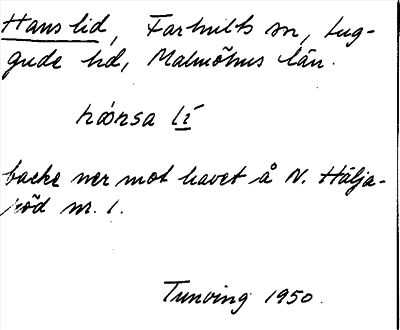 Hans lid, Farhults sn, Lug-
gude hd, Malmöhus län.
hånsa lí
backe ner mot havet å N. Hälja-
röd nr. 1.
Tunving 1950.